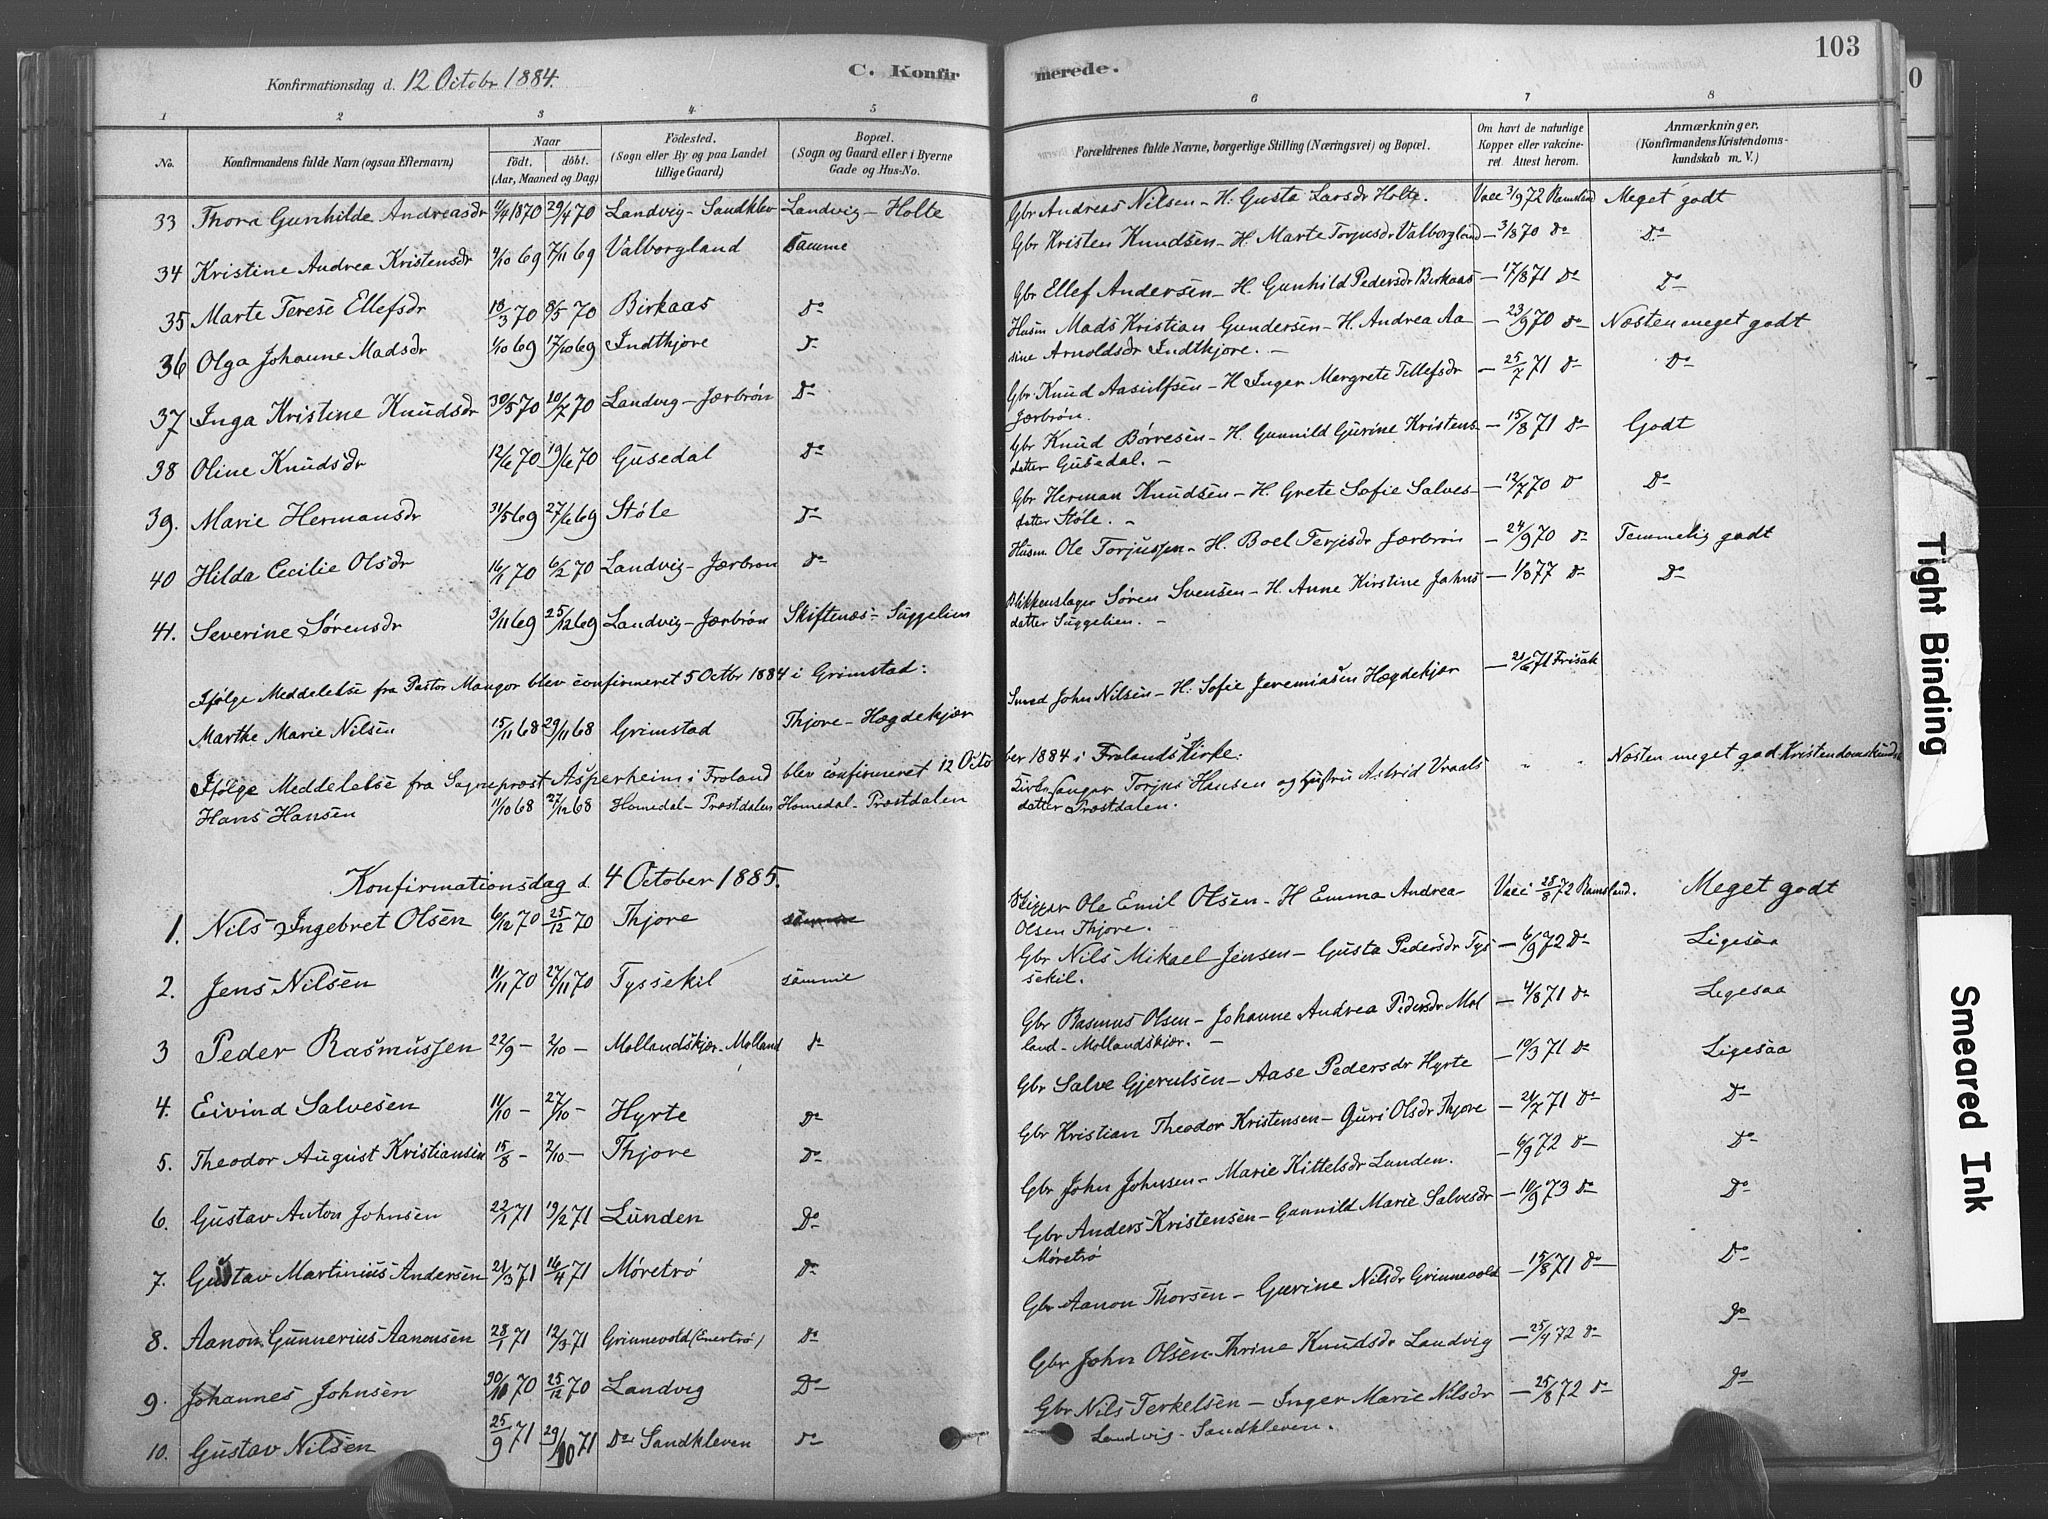 103
Konfirmationsdag d. 12 Octobr 1884.
C. Konfirmerede.
1 2 3 4 5 6 7 8
No.
Konfirmandens fulde Navn (ogsaa Efternavn)
Naar
födt. döbt.
(Aar, Maaned og Dag)
Födested.
(Sogn eller By og paa Landet
tillige Gaard)
Bopæl.
(Sogn og Gaard eller i Byerne
Gade og Hus-No.
Forældrenes fulde Navne, borgerlige Stilling (Næringsvei) og Bopæl.
Om havt de naturlige
Kopper eller vakcine-
ret Attest herom.
Anmærkninger.
(Konfirmandens Kristendoms-
kundskab m. V.)
33 Thora Gunhilde Andreasdr 11/4 1870 29/4 70 Landvig-Sandklev Landvig-Holte Gbr Andreas Nilsen - H. Gusta Larsdr Holte. Vacc 3/9 72 Ramsland Meget godt
34 Kristine Andrea Kristensdr 4/10 69 7/11 69 Valborgland Samme Gbr Kristen Knudsen - H. Marte Torjusdr Valborgland - 3/8 70 Do Do
35 Marte Terese Ellefsdr 13/3 70 8/5 70 Birkaas Do Gbr Ellef Andersen - H. Gunhild Pedersdr Birkaas - 17/8 71 Do Do
36 Olga Johanne Madsdr 1/10 69 17/10 69 Indtkjore Do Husm Mads Kristian Gundersen - H. Andrea Aa - 23/9 70 Do Næsten meget godt
sine Arnoldsdr Indtkjore. -
37 Inga Kristine Knudsdr 30/5 70 10/7 70 Landvig-Jærbrøn Do Gbr Knud Aasulfsen - H Inger Mergrete Tellefsdr - 25/7 71 Do Do
Jærbrøn.
38 Oline Knudsdr 12/6 70 19/6 70 Gusedal Do Gbr Knud Børresen - H. Gunnild Gurine Kristens- - 15/8 71 Do Godt
datter Gusedal. -
39. Marie Hermansdr 31/5 69 27/6 69 Støle Do Gbr Herman Knudsen - H. Grete Sofie Salves- - 12/7 70 Do Do
datter Støle. -
40 Hilda Cecilie Olsdr 16/1 70 6/2 70 Landvig-Jærbrøn Do Husm. Ole Torjussen - H. Boel Terjesdr Jærbrøn - 24/9 70 Do Temmelig godt
41. Severine Sørensdr 3/11 69 25/12 69 Landvig-Jærbrøn Skiftenæs-Suggelien Blikkenslager Søren Svensen - H. Anne Kirstine Jahns - 1/8 77 Do Do
datter Suggelien. -
Ifølge Meddelelse fra Pastor Mangor blev confirmeret 5 Octbr 1884 i Grimstad:
Marthe Marie Nilsen 15/11 68 29/11 68 Grimstad Thjore-Hægdekjær Smed John Nilsen - H. Sofie Jeremiasen Hægdekjær - 21/6 71 Frisak
Ifølge Meddelelse fra Sogneprest Asperheim i Froland blev confirmeret 12 October 1884 i Frolands Kirke:
Hans Hansen 11/10 68 27/12 68 Homedal-Præstdalen Homedal-Præstdalen Kirkesanger Torjus Hansen og Hustru Astrid Vraals " " Næsten meget god Kristendomskundsk
datter Præstdalen.
Konfirmationsdag d. 4 October 1885.
1. Nils Ingebret Olsen 6/12 70 25/12 70 Thjore samme Skipper Ole Emil Olsen - H Emma Andrea Vacc 28/8 72 Ramsland. Meget godt
Olsen Thjore. -
2. Jens Nilsen 11/11 70 27/11 70 Tyssekil samme Gbr Nils Mikael Jensen - Gusta Pedersdr Tys- - 6/9 72 Do Ligesaa
sekil.
3 Peder Rasmussen 22/9 - 2/10 - Mollandskjær-Molland Do Gbr Rasmus Olsen - Johanne Andrea Pedersdr Mol - 4/8 71 Do Ligesaa
land - Mollandskjær. -
4. Eivind Salvesen 11/10 - 27/10 - Hyrte Do Gbr Salve Gjerulsen - Aase Pedersdr Hyrte - 19/3 71 Do Ligesaa
5. Theodor August Kristiansen 15/8 - 2/10 - Thjore Do Gbr Kristian Theodor Kristensen - Guri Olsdr Thjore - 21/7 71 Do Do
6. Gustav Anton Johnsen 22/1 71 19/2 71 Lunden Do Gbr John Johnsen - Marie Kittelsdr Lunden. - 6/9 72 Do Do
7. Gustav Martinius Andersen 21/3 71 16/4 71 Møretrø Do Gbr Anders Kristensen - Gunnild Marie Salvesdr - 10/9 73 Do Do
Møretrø
8. Aanon Gunnerius Aanonsen 28/1 71 12/3 71 Grinnevold (Enertrø) Do Gbr Aanon Thorsen - Gurine Nilsdr Grinnevold - 15/8 71 Do Do
9. Johannes Johnsen 30/10 70 25/12 70 Landvig Do Gbr John Olsen - Thrine Knudsdr Landvig - 25/4 72 Do Do
10. Gustav Nilsen 25/9 71 29/10 71 Do Sandkleven Do Gbr Nils Terkelsen - Inger Marie Nilsdr - 25/8 72 Do Do
Landvig - Sandkleven.
Tight Binding
Smeared Ink